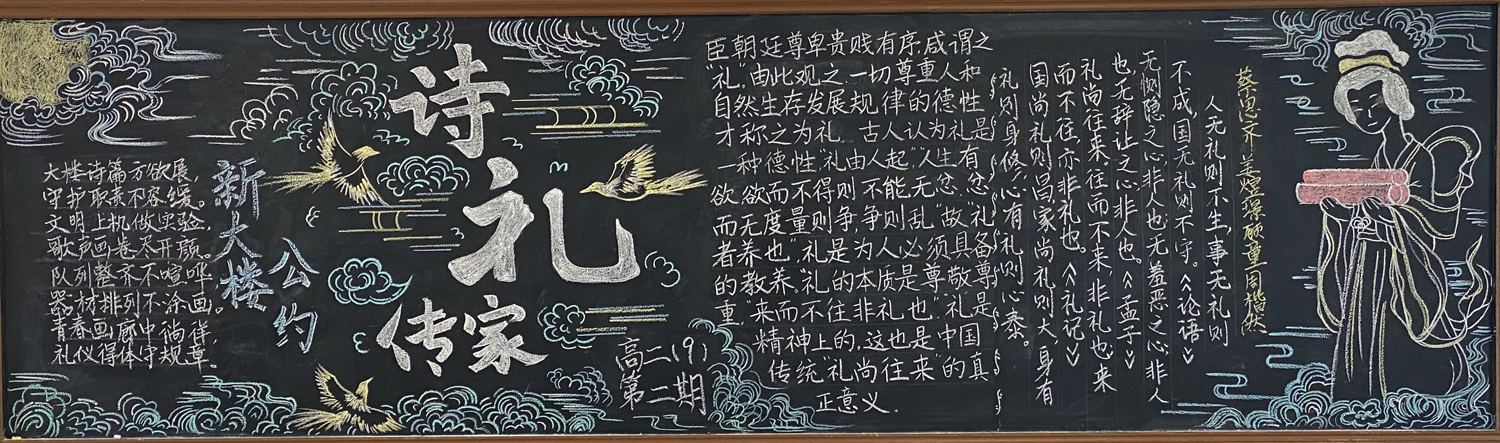 诗
礼
传家
新大楼
公约
大楼诗篇方欲展,
守护职责不容缓。
文明上机做实验,
歌声画卷尽开颜。
队列整齐不喧哗,
器材排列不涂画。
青春画廊中徜徉,
礼仪得体守规章。
高二(9)
第二期
臣朝廷尊卑贵贱有序,咸谓之
“礼”,由此观之,一切尊重人和
自然生存发展规律的德性
才称之为礼。古人认为礼是
一种德性“礼由人起”“人生有
欲欲而不得则不能无忿,忿
而无度量则争,争则乱”故“礼
者养也”礼是为人必须具备
的教养,礼的本质是尊敬尊
重“来而不往非礼也”礼是
精神上的,这也是中国
传统“礼尚往来”的真
正意义.
人无礼则不生,事无礼则
不成国无礼则不守。《论语》
无恻隐之心,非人也,无羞恶之心,非人
也,无辞让之心,非人也。《孟子》
礼尚往来,往而不来,非礼也,来
而不往,亦非礼也。《礼记》
国尚礼则国昌,家尚礼则家大,身有
礼则身修,心有礼则心泰。
蔡思齐 姜煜璟 顾童 周楷